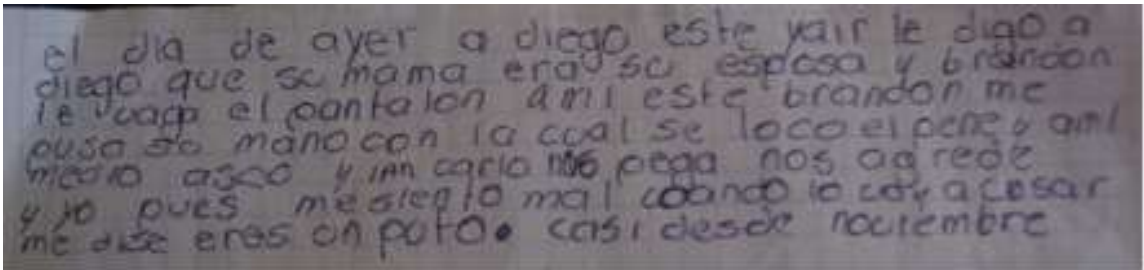 el dia de ayer a diego este yair le digo a
diego que su mama era su esposa y brandon
le vaga el pantalon ami este brandon me
puso so mano con la cual se toco el pene y ami
medio asco y ian carlo nos pega nos agrede
y yo pues me siento mal cuando lo voy a cosar
me dise eres un puto. casi desde noviembre